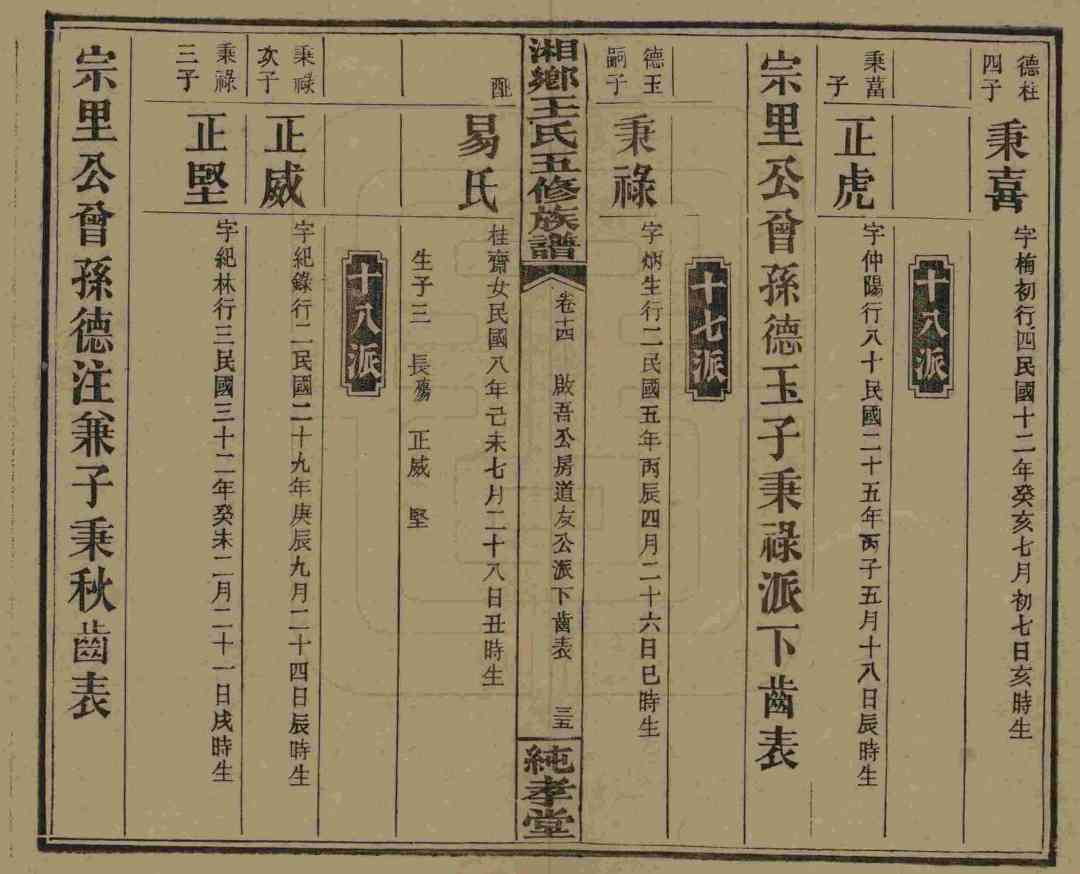 德柱四子
秉喜
字梅初行四民國十二年癸亥七月初七日亥時生
十八派
秉萬子
正虎
字仲陽行八十民國二十五年丙子五月十八日辰時生
宗里公曾孫德玉子秉祿派下齒表
十七派
德玉嗣子
秉祿
字炳生行二民國五年丙辰四月二十六日巳時生
湘鄉王氏五修族譜
卷十四 啟吾公房道友公派下齒表 三五
純孝堂
配
易氏
桂齋女民國八年己未七月二十八日丑時生
生子三 長殤 正威 堅
十八派
秉祿次子
正威
字紀錄行二民國二十九年庚辰九月二十四日辰時生
秉祿三子
正堅
字紀林行三民國三十二年癸未二月二十一日戌時生
宗里公曾孫德注兼子秉秋齒表